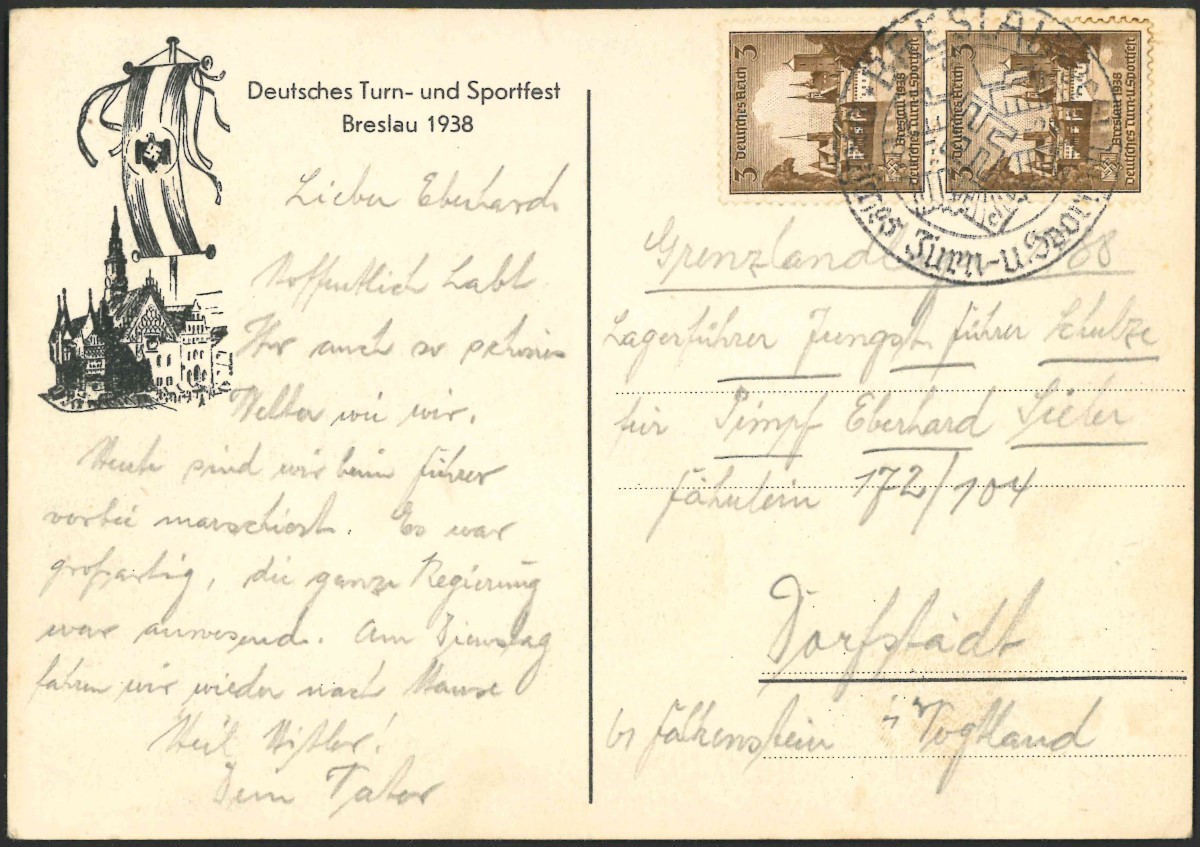 Deutsches Turn- und Sportfest
Breslau 1938
Lieber Eberhard
Hoffentlich habt
Ihr auch so schönes
Wetter wie wir.
Heute sind wir beim Führer
vorbei marschiert. Es war
großartig, die ganze Regierung
war anwesend. Am Dienstag
fahren wir wieder nach Hause
Heil Hitler!
Dein Vater
3 Deutsches Reich 3
Breslau 1938
Deutsches Turn-u. Sportfest
3 Deutsches Reich 3
Breslau 1938
Deutsches Turn-u. Sportfest
BRESLAU
Turn-u. Sport
Grenzland 68
Lagerführer Jungst. führer Schulze
für Pimpf Eberhard
Fähnlein 172/104
Dorfstadt
b/ Falkenstein i/ Vogtland